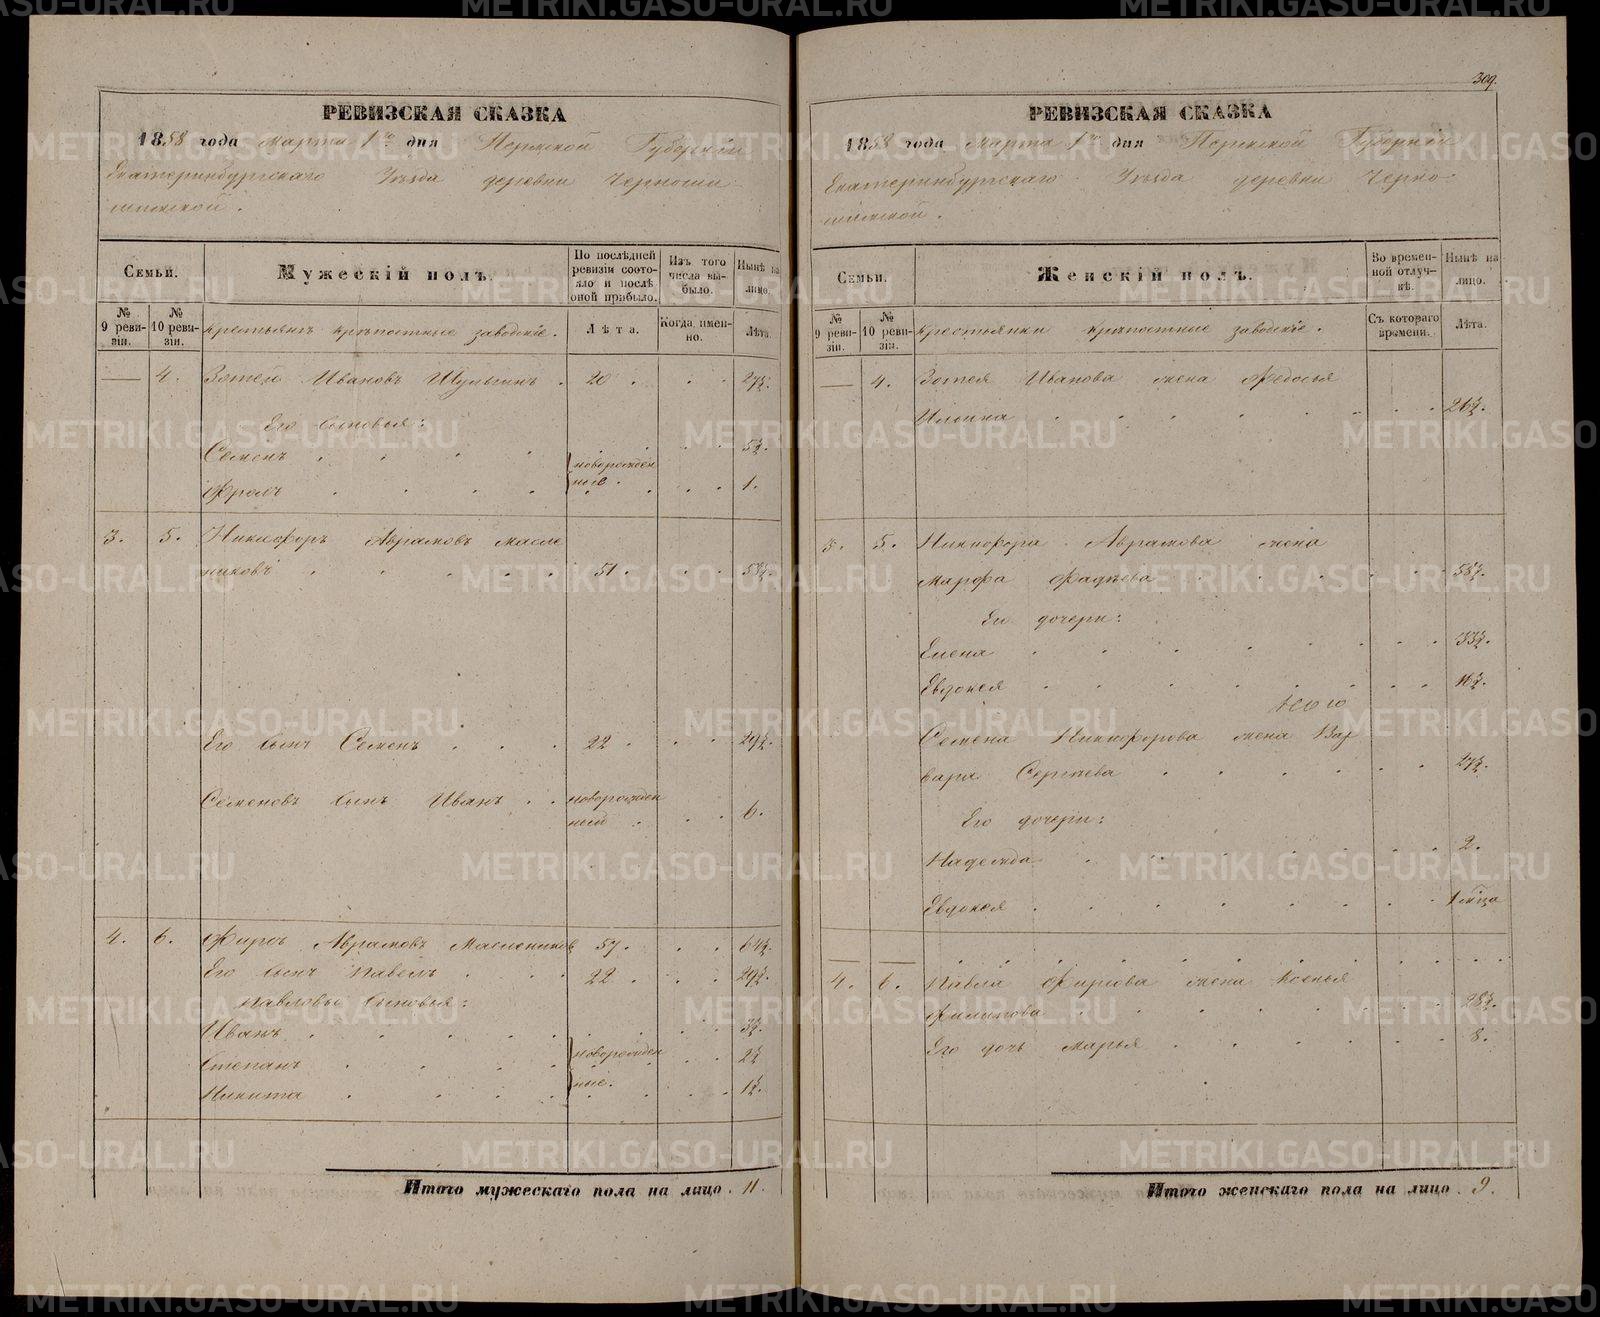 РЕВИЗСКАЯ СКАЗКА
1858 года марта 1го дня Пермской Губерніи
Екатеринбургскаго Уѣзда деревни Черноши-
шимской.
Семьи.
Мужескій полъ.
По послѣдней ревизіи состояло и послѣ оной прибыло.
Изъ того числа выбыло.
Нынѣ на лицо.
№ 9 ревизіи.
№ 10 ревизіи.
крестьянъ крѣпостные заводскіе.
Лѣта.
Когда именно.
Лѣта.
— 4. Зотей Ивановъ Шульгинъ. 20. 27½.
Его сыновья:
Семенъ 5½.
новорожден
ные.
Фролъ 1.
3. 5. Никифоръ Аврамовъ Масле
никовъ 51. 58½.
Его сынъ Семенъ 22. 29½.
Семеновъ сынъ Иванъ новорожден
ный 6.
4. 6. Фирсъ Аврамовъ Маслениковъ 57. 64½.
Его сынъ Павелъ 22. 29½.
Павловы сыновья:
Иванъ 3½.
Степанъ новорожден 2½
Никита ные. 1½.
Итого мужескаго пола на лицо. 11.
309.
РЕВИЗСКАЯ СКАЗКА
1858 года марта 1го дня Пермской Губерніи
Екатеринбургскаго Уѣзда деревни Черно-
шимской.
Семьи.
Женскій полъ.
Во временной отлучкѣ.
Нынѣ на лицо.
№ 9 ревизіи.
№ 10 ревизіи.
крестьянки крѣпостные заводскіе.
Съ котораго времени.
Лѣта.
— 4. Зотея Иванова жена Федосья
Ильина 26½.
3. 5. Никифора Аврамова жена
Марфа Фадѣева 58½.
Его дочери:
Елена 33½.
Евдокея 16½.
Семена Никифорова жена Вар
вара Сергѣева 27½.
Его дочери:
Надежда 2.
Евдокея 1 м-ца
4. 6. Павла Фирсова жена Ксенья
Филипова 28½.
Его дочь Марья 8.
Итого женскаго пола на лицо. 9.
METRIKI.GASO-URAL.RU